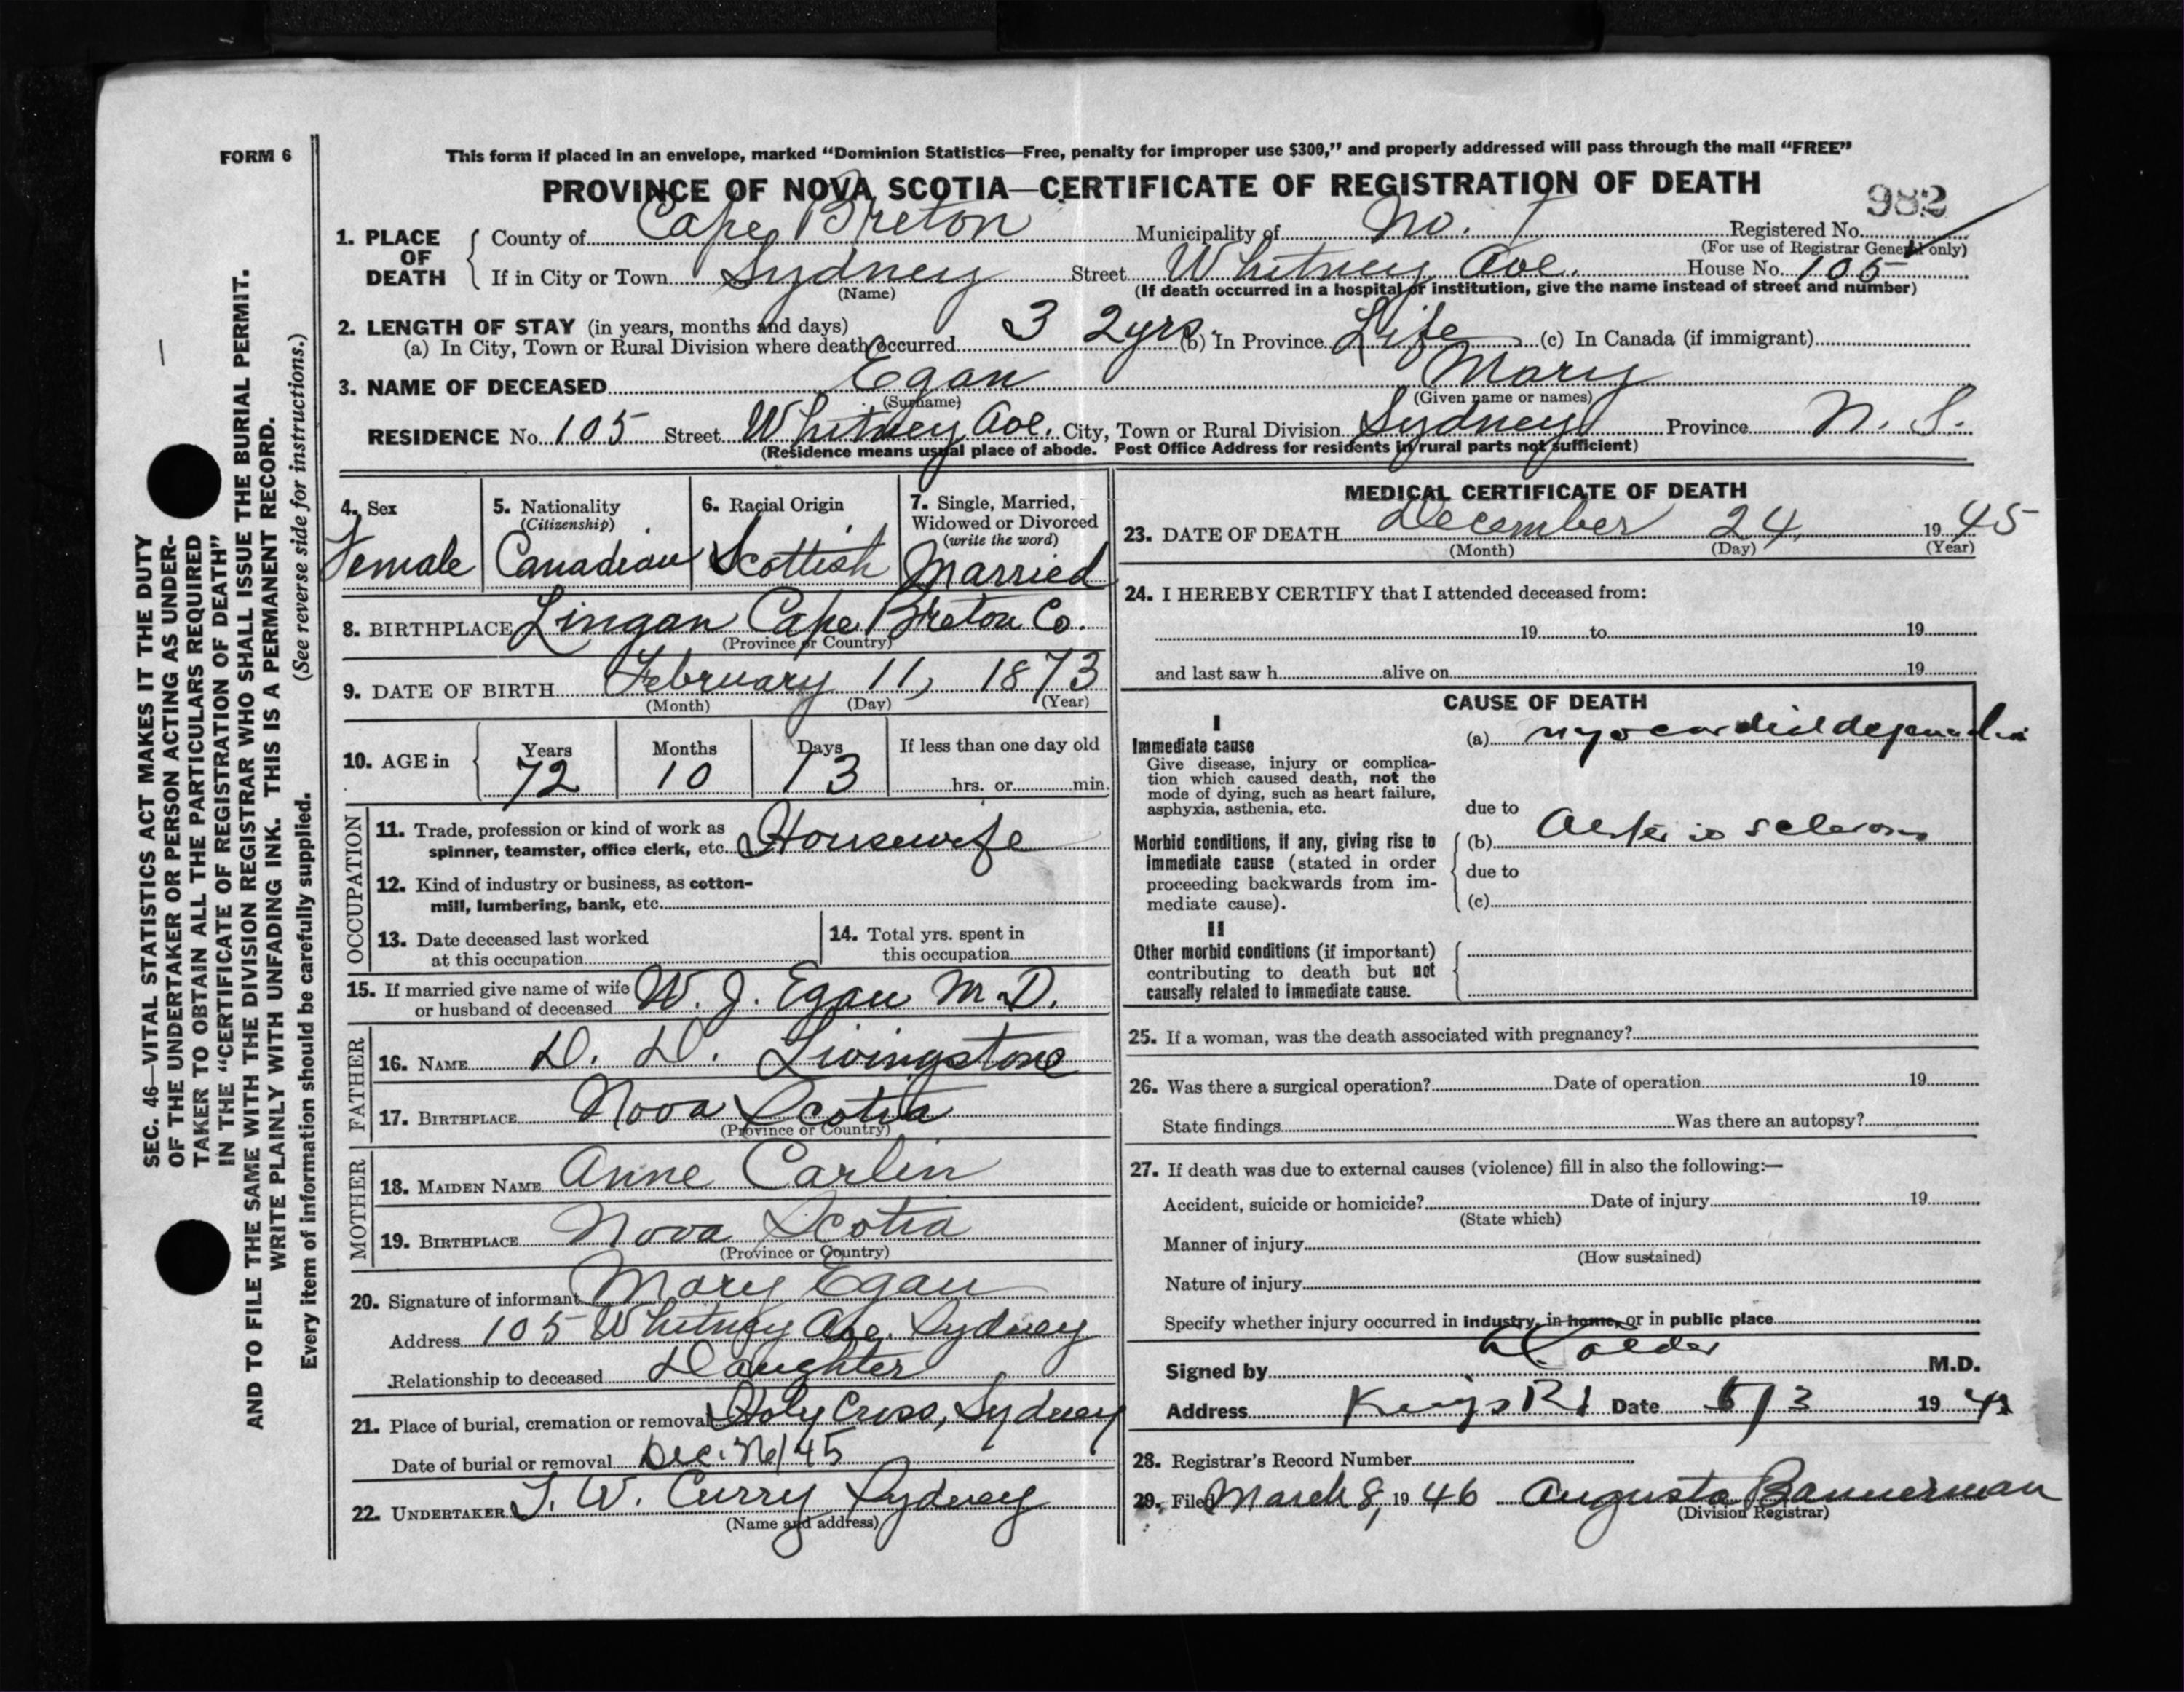 FORM 6
This form if placed in an envelope, marked “Dominion Statistics—Free, penalty for improper use $300,” and properly addressed will pass through the mail “FREE”
PROVINCE OF NOVA SCOTIA—CERTIFICATE OF REGISTRATION OF DEATH
982
1. PLACE OF DEATH
County of Cape Breton Municipality of No. 7 Registered No.
(For use of Registrar General only)
If in City or Town Sydney Street Whitney Ave. House No. 105
(Name) (If death occurred in a hospital or institution, give the name instead of street and number)
2. LENGTH OF STAY (in years, months and days)
(a) In City, Town or Rural Division where death occurred 32 yrs. (b) In Province Life (c) In Canada (if immigrant)
3. NAME OF DECEASED Egan Mary
(Surname) (Given name or names)
RESIDENCE No. 105 Street Whitney Ave. City, Town or Rural Division Sydney Province N. S.
(Residence means usual place of abode. Post Office Address for residents in rural parts not sufficient)
4. Sex
Female
5. Nationality
(Citizenship)
Canadian
6. Racial Origin
Scottish
7. Single, Married,
Widowed or Divorced
(write the word)
Married
8. BIRTHPLACE Lingan Cape Breton Co.
(Province or Country)
9. DATE OF BIRTH February 11, 1873
(Month) (Day) (Year)
10. AGE in Years Months Days If less than one day old
72 10 13 hrs. or min.
OCCUPATION
11. Trade, profession or kind of work as
spinner, teamster, office clerk, etc. Housewife
12. Kind of industry or business, as cotton-
mill, lumbering, bank, etc.
13. Date deceased last worked
at this occupation
14. Total yrs. spent in
this occupation
15. If married give name of wife
or husband of deceased W. J. Egan M.D.
FATHER
16. NAME D. D. Livingstone
17. BIRTHPLACE Nova Scotia
(Province or Country)
MOTHER
18. MAIDEN NAME Anne Carlin
19. BIRTHPLACE Nova Scotia
(Province or Country)
20. Signature of informant Mary Egan
Address 105 Whitney Ave. Sydney
Relationship to deceased Daughter
21. Place of burial, cremation or removal Holy Cross, Sydney
Date of burial or removal Dec. 26/45
22. UNDERTAKER T. W. Curry Sydney
(Name and address)
MEDICAL CERTIFICATE OF DEATH
23. DATE OF DEATH December 24, 1945
(Month) (Day) (Year)
24. I HEREBY CERTIFY that I attended deceased from:
19 to 19
and last saw h alive on 19
CAUSE OF DEATH
I
Immediate cause
Give disease, injury or complica-
tion which caused death, not the
mode of dying, such as heart failure,
asphyxia, asthenia, etc.
(a) myocardial
due to
Morbid conditions, if any, giving rise to
immediate cause (stated in order
proceeding backwards from im-
mediate cause).
(b) Arterio sclerosis
due to
(c)
II
Other morbid conditions (if important)
contributing to death but not
causally related to immediate cause.
25. If a woman, was the death associated with pregnancy?
26. Was there a surgical operation? Date of operation 19
State findings Was there an autopsy?
27. If death was due to external causes (violence) fill in also the following:—
Accident, suicide or homicide? Date of injury 19
(State which)
Manner of injury
(How sustained)
Nature of injury
Specify whether injury occurred in industry, in home, or in public place
Signed by Calder M.D.
Address Kings Rd Date 19
28. Registrar's Record Number
29. Filed March 8, 1946 Augusta Bannerman
(Division Registrar)
SEC. 46—VITAL STATISTICS ACT MAKES IT THE DUTY
OF THE UNDERTAKER OR PERSON ACTING AS UNDER-
TAKER TO OBTAIN ALL THE PARTICULARS REQUIRED
IN THE “CERTIFICATE OF REGISTRATION OF DEATH”
AND TO FILE THE SAME WITH THE DIVISION REGISTRAR WHO SHALL ISSUE THE BURIAL PERMIT.
WRITE PLAINLY WITH UNFADING INK. THIS IS A PERMANENT RECORD.
Every item of information should be carefully supplied. (See reverse side for instructions.)